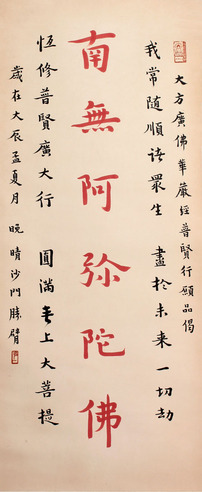 大方廣佛華嚴經普賢行願品偈
我常隨順諸眾生　盡於未来一切劫
南無阿弥陀佛
恆修普賢廣大行　圓滿無上大菩提
歲在大辰孟夏月　晚晴沙門勝臂